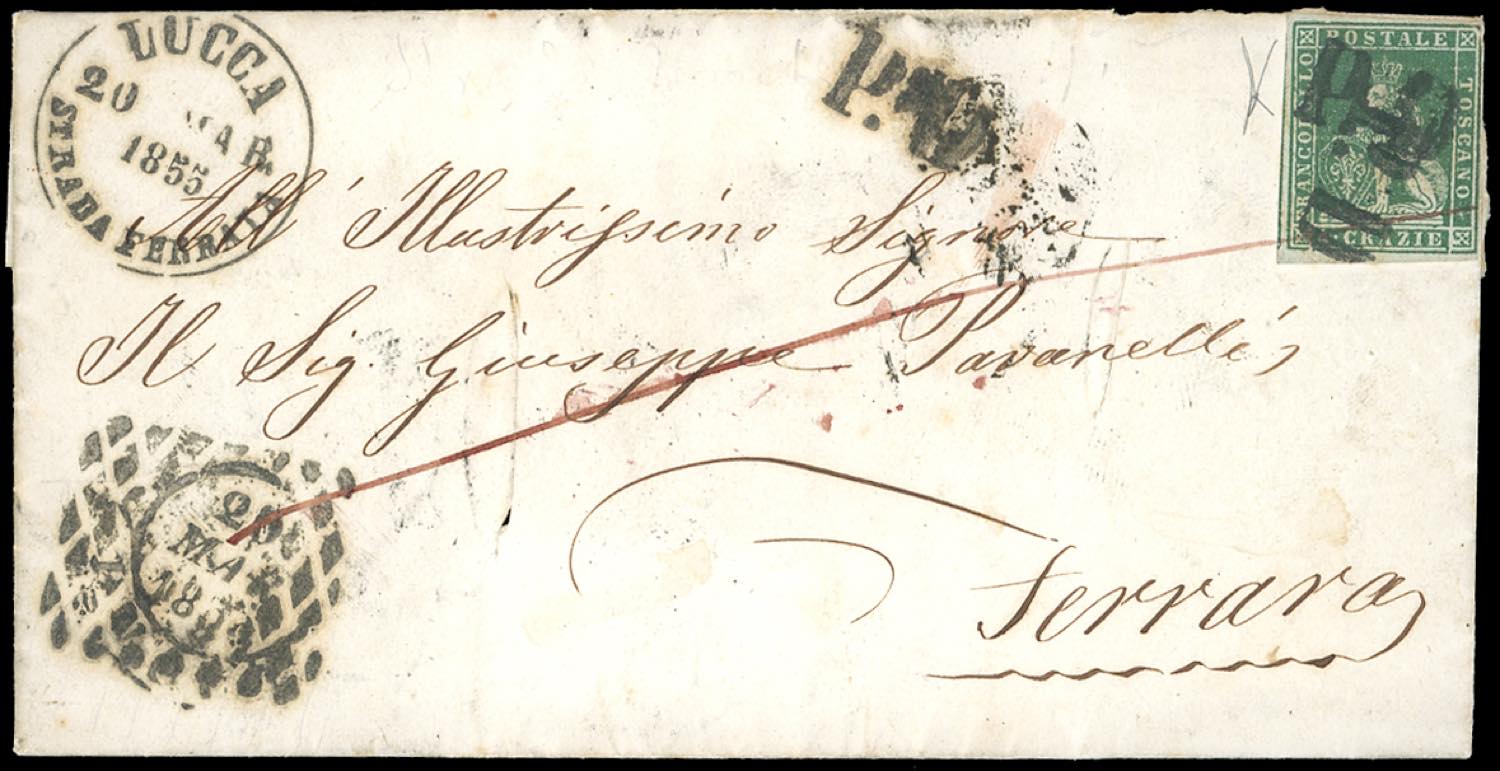 LUCCA
20 MAR.
1855
STRADA FERRATA
P.D.
FRANCOBOLLO POSTALE TOSCANO
CRAZIE
P.D.
All' Illustrissimo Signore
Il Sig. Giuseppe Pavanelli
20
MAR
1855
Ferrara